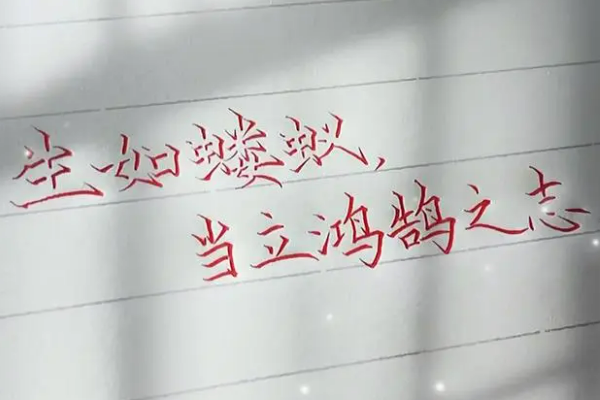 生如蝼蚁，
当立鸿鹄之志